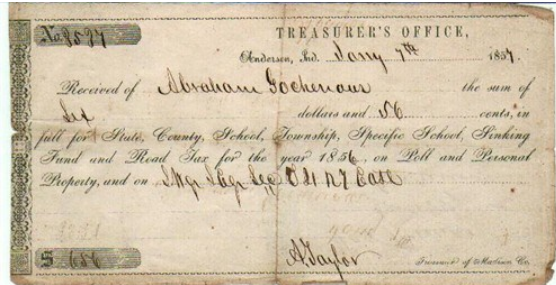 No. 8587
TREASURER'S OFFICE,
Anderson, Ind. Jany 7th 1857.
Received of Abraham Gochenour the sum of
Six dollars and 56 cents, in
full for State, County, School, Township, Specific School, Sinking
Fund and Road Tax for the year 1856, on Poll and Personal
Property, and on East
$ 656
A Taylor Treasurer of Madison Co.